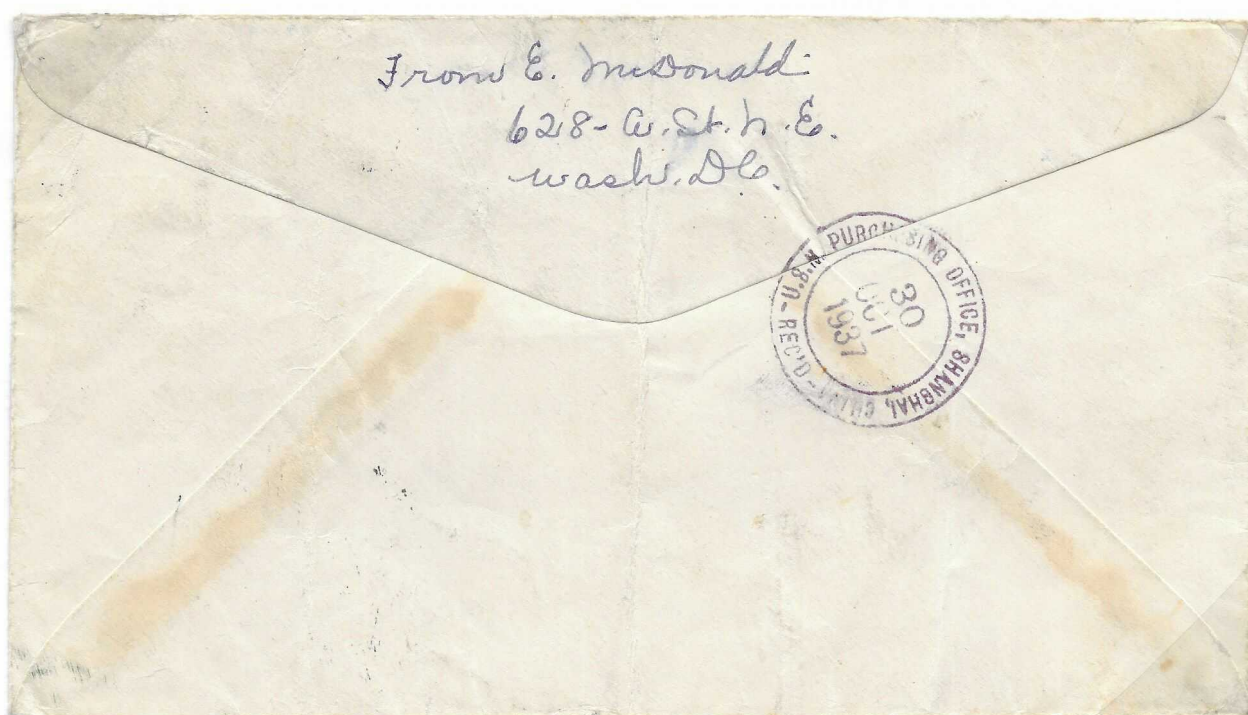 From E. McDonald
628- A. St. N.E.
Wash. DC.
U.S.N. PURCHASING OFFICE, SHANGHAI, CHINA
-REC'D-
30
OCT
1937